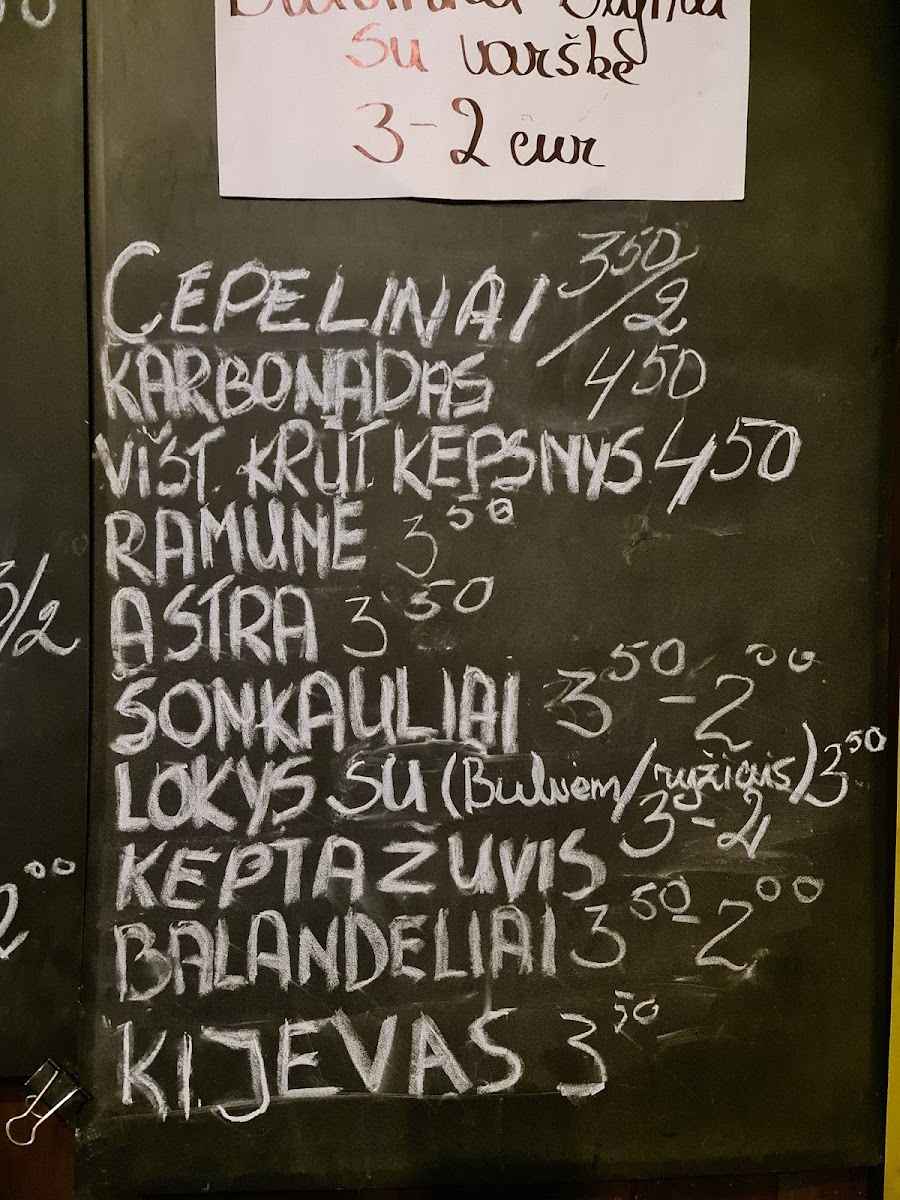 su varške
3-2 eur
CEPELINAI 3⁵⁰/2
KARBONADAS 4⁵⁰
VIŠT. KRŪT KEPSNYS 4⁵⁰
RAMUNE 3⁵⁰
ASTRA 3⁵⁰
ŠONKAULIAI 3⁵⁰-2⁰⁰
LOKYS SU (Bulvem/ryžiais) 3⁵⁰
KEPTA ŽUVIS 3-2
BALANDELIAI 3⁵⁰-2⁰⁰
KIJEVAS 3⁵⁰
/2
2⁰⁰